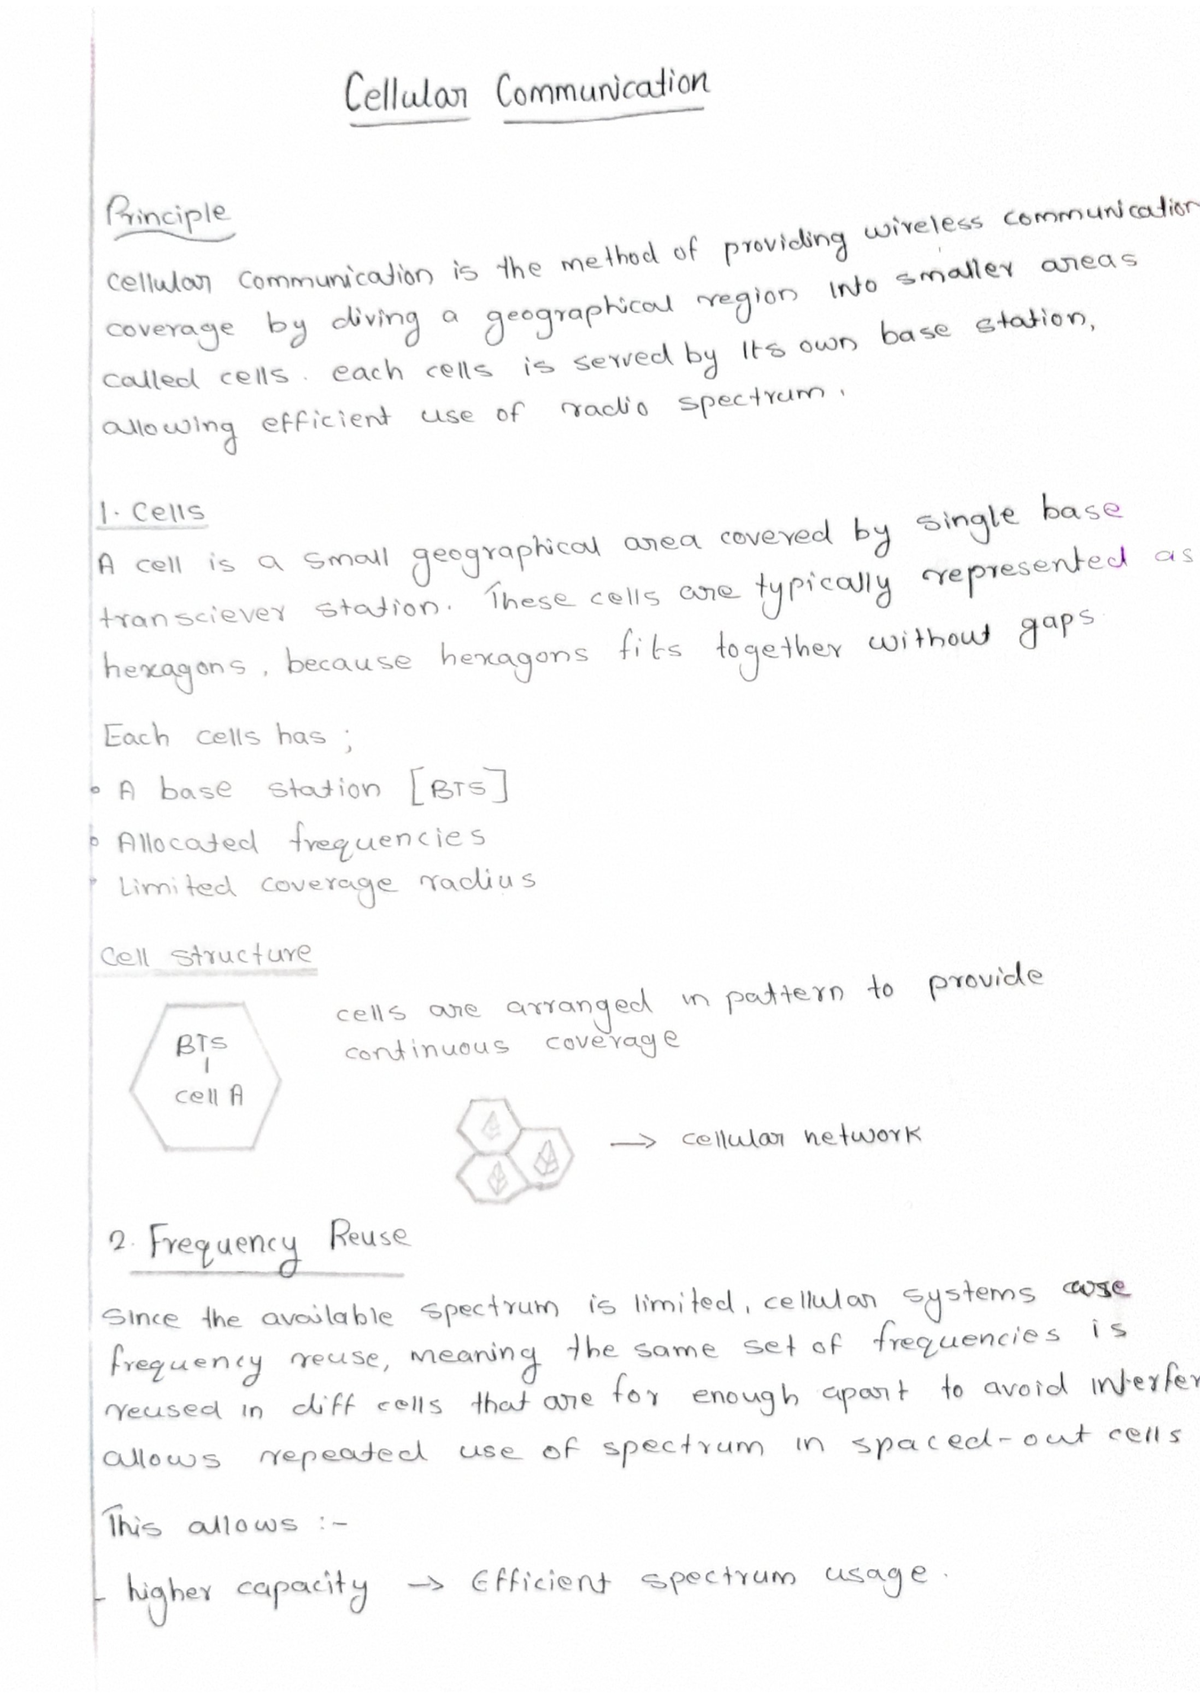 Cellular Communication
Principle
cellular communication is the method of providing wireless communication
coverage by diving a geographical region into smaller areas
called cells. each cells is served by its own base station,
allowing efficient use of radio spectrum.
1. Cells
A cell is a small geographical area covered by single base
transciever station. These cells are typically represented as
hexagons, because hexagons fits together without gaps.
Each cells has ;
• A base station [BTS]
• Allocated frequencies
• Limited coverage radius
Cell structure
cells are arranged in pattern to provide
continuous coverage
BTS
cell A
→ cellular network
2. Frequency Reuse
Since the available spectrum is limited, cellular systems use
frequency reuse, meaning the same set of frequencies is
reused in diff cells that are for enough apart to avoid interfer
allows repeated use of spectrum in spaced-out cells
This allows :-
- higher capacity → Efficient spectrum usage.